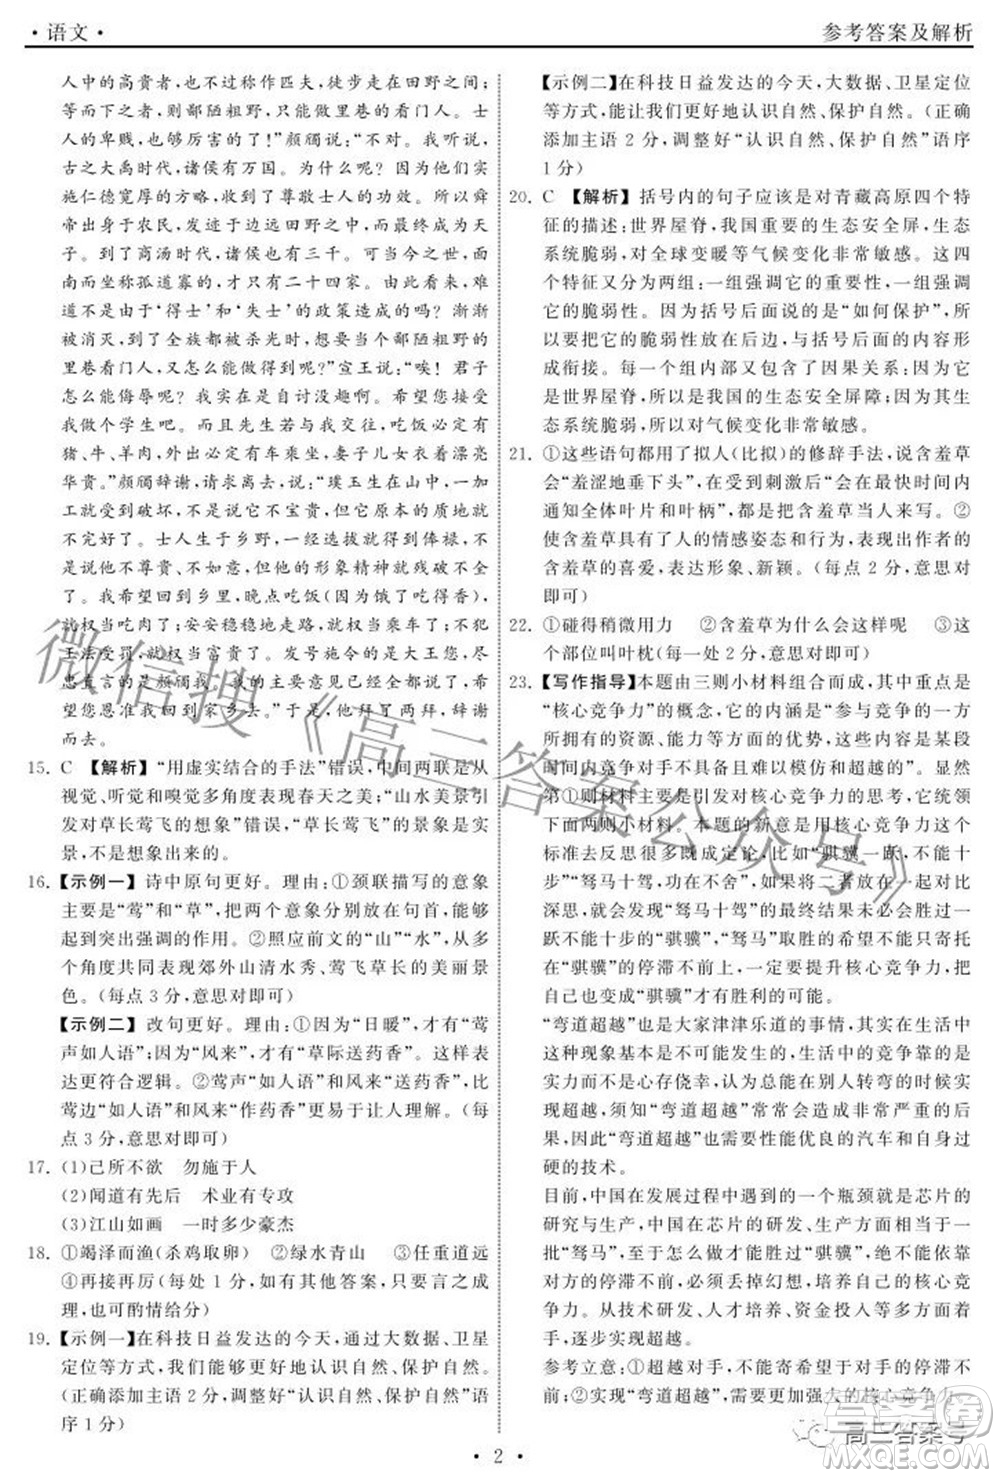 ·语文·
参考答案及解析
人中的高贵者,也不过称作匹夫,徒步于田野之间;
等而下之的,则鄙陋粗野,只能做里巷的看门人。士
人的卑贱,也够厉害的了!”颜斶说:“不对。我听说,
古之大禹时代,诸侯有万国。为什么呢?是因为他们
施行仁德宽厚的方略,收到了尊敬士人的功效。所以舜
帝出身于农民,发迹于边远田野之中,终而成为天
子。到了商汤时代,诸侯也有三千。可是到了现在,
南面称孤道寡的,才不过二十四家。由此看来,这
难道不是‘得士’和‘失士’的政策造成的吗?渐渐
被消灭,到了全族都被杀光时,想当个鄙陋粗野的
里巷看门人,又怎么能得到呢?”宣王说:“唉!君子
怎么能侮辱呢?我实在是自讨没趣啊。希望您接受
我做个学生吧。况且先生若与我交往,吃饭必有
猪、牛、羊肉,外出必有车乘坐,妻子儿女衣着漂亮
华贵。”颜斶辞谢,请求离去,说:“璞玉生在山中,一
经加工就受到破坏,不是不宝贵,但它原本的完美
不存在了。士人生于乡野,一经推举就享受俸禄,不
是说他不尊贵、不如意,但他的形象精神就残破不全
了。我希望回到乡里,晚点吃饭(因为饿了吃得香),
就权当吃肉了;安安稳稳地走路,就权当乘车;不犯
王法受罚,就权当富贵了。发号施令的是大王您,竭
尽忠言的是颜斶我。我的意思已经完全表达了,希望
大王让我回家乡去。”于是,颜斶拜了两拜,辞谢
而去。
15. C 【解析】“用虚实结合的手法”错误,中间两联是从
视觉、听觉和嗅觉多角度表现春天之美;“山水美景引
发对草长莺飞的想象”错误,“草长莺飞”的景象是实
景,不是想象出来的。
16. 【示例一】诗中原句更好。理由:①颈联描写的意象
主要是“莺”和“草”,把两个意象分别放在句首,能够
起到突出强调的作用。②照应前文的“山”“水”,从多
个角度共同表现郊外山清水秀、莺飞草长的美丽景
色。(每点3分,意思对即可)
【示例二】改句更好。理由:①因为“日暖”,才有“莺
声如人语”;因为“风来”,才有“草际送药香”。改句表
达更符合逻辑。②莺声“如人语”和风来“送药香”,比
莺边“如人语”和风来“作药香”更易于让人理解。(每
点3分,意思对即可)
17. (1)己所不欲 勿施于人
(2)闻道有先后 术业有专攻
(3)江山如画 一时多少豪杰
18. ①竭泽而渔(杀鸡取卵) ②绿水青山 ③任重道远
④再接再厉(每处1分,如有其他答案,只要言之成
理,也可酌情给分)
19. 【示例一】在科技日益发达的今天,通过大数据、卫星
定位等方式,我们能够更好地认识自然、保护自然。
(正确添加主语2分,调整好“认识自然、保护自然”语
序1分)
【示例二】在科技日益发达的今天,大数据、卫星定位
等方式,能让我们更好地认识自然、保护自然。(正确
添加主语2分,调整好“认识自然、保护自然”语序
1分)
20. C 【解析】括号内的句子应该是对青藏高原四个特
征的描述:世界屋脊,我国重要的生态安全屏障,生态
系统脆弱,对全球变暖等气候变化非常敏感。这四
个特征又分为两组:一组强调它的重要性,一组强调
它的脆弱性。因为括号后面说的是“如何保护”,所以
要把它的脆弱性放在后边,与括号后面的内容形
成衔接。每一个组内部,又构成了因果关系:因为它
是世界屋脊,所以是我国的生态安全屏障;因为其生
态系统脆弱,所以对气候变化非常敏感。
21. ①这些语句都用了拟人(比拟)的修辞手法,写含羞草
会“羞涩地垂下头”,在受到刺激后“会在最快时间内
通知全体叶片和叶柄”,都是把含羞草当人来写。②
使含羞草具有了人的情感姿态和行为,表现出作者的
对含羞草的喜爱,表达形象、新颖。(每点2分,意思对
即可)
22. ①碰得稍微用力 ②含羞草为什么会这样呢 ③这
个部位叫叶枕(每一处2分,意思对即可)
23. 【写作指导】本题由三则小材料组合而成,其中重点是
“核心竞争力”的概念,它的内涵是“参与竞争的一方
所拥有的资源、能力等方面的优势,这些优势是某段
时间内竞争对手难以模仿和超越的”。显然
第①则材料主要是引发对核心竞争力的思考,它统领
下面两则小材料。本题的新意是用核心竞争力这个
标准去反思很多现成定论,比如“骐骥一跃,不能十
步;驽马十驾,功在不舍”,如果将二者放在一起对比
深思,就会发现“驽马十驾”的最终结果却是要超过一
跃不能十步的“骐骥”,“驽马”取胜的希望不能只寄托
在“骐骥”的停滞不前上,一定要提升核心竞争力,自
己也变成“骐骥”才有胜利的可能。
“弯道超越”也是大家津津乐道的事情,其实在生活中
这种现象基本是不可能发生的,生活中的竞争车不能
总是心存侥幸,一味希望能够在别人转弯的时候实现
超越,须知“弯道超越”常常会造成非常严重的后
果,因此“弯道超越”需要性能优良的汽车和安全意
识。
目前,中国在发展过程中遇到的一个瓶颈就是芯片的
研究与生产,中国在芯片的竞争中,实实在在是一匹
“驽马”,至于怎么样变成“骐骥”,绝不能依靠
对方的停滞不前,必须丢弃幻想,培养自己的核心竞
争力。从技术研发、人才培养、资金投入等方面着
手,逐步实现超越。
参考立意:①超越对手,不能寄希望于对手的停滞不
前;②实现“弯道超越”,需要更加强大的核心竞争力。
· 2 ·
微信搜《高三答案公众号》
高三答案号
MXQE.COM